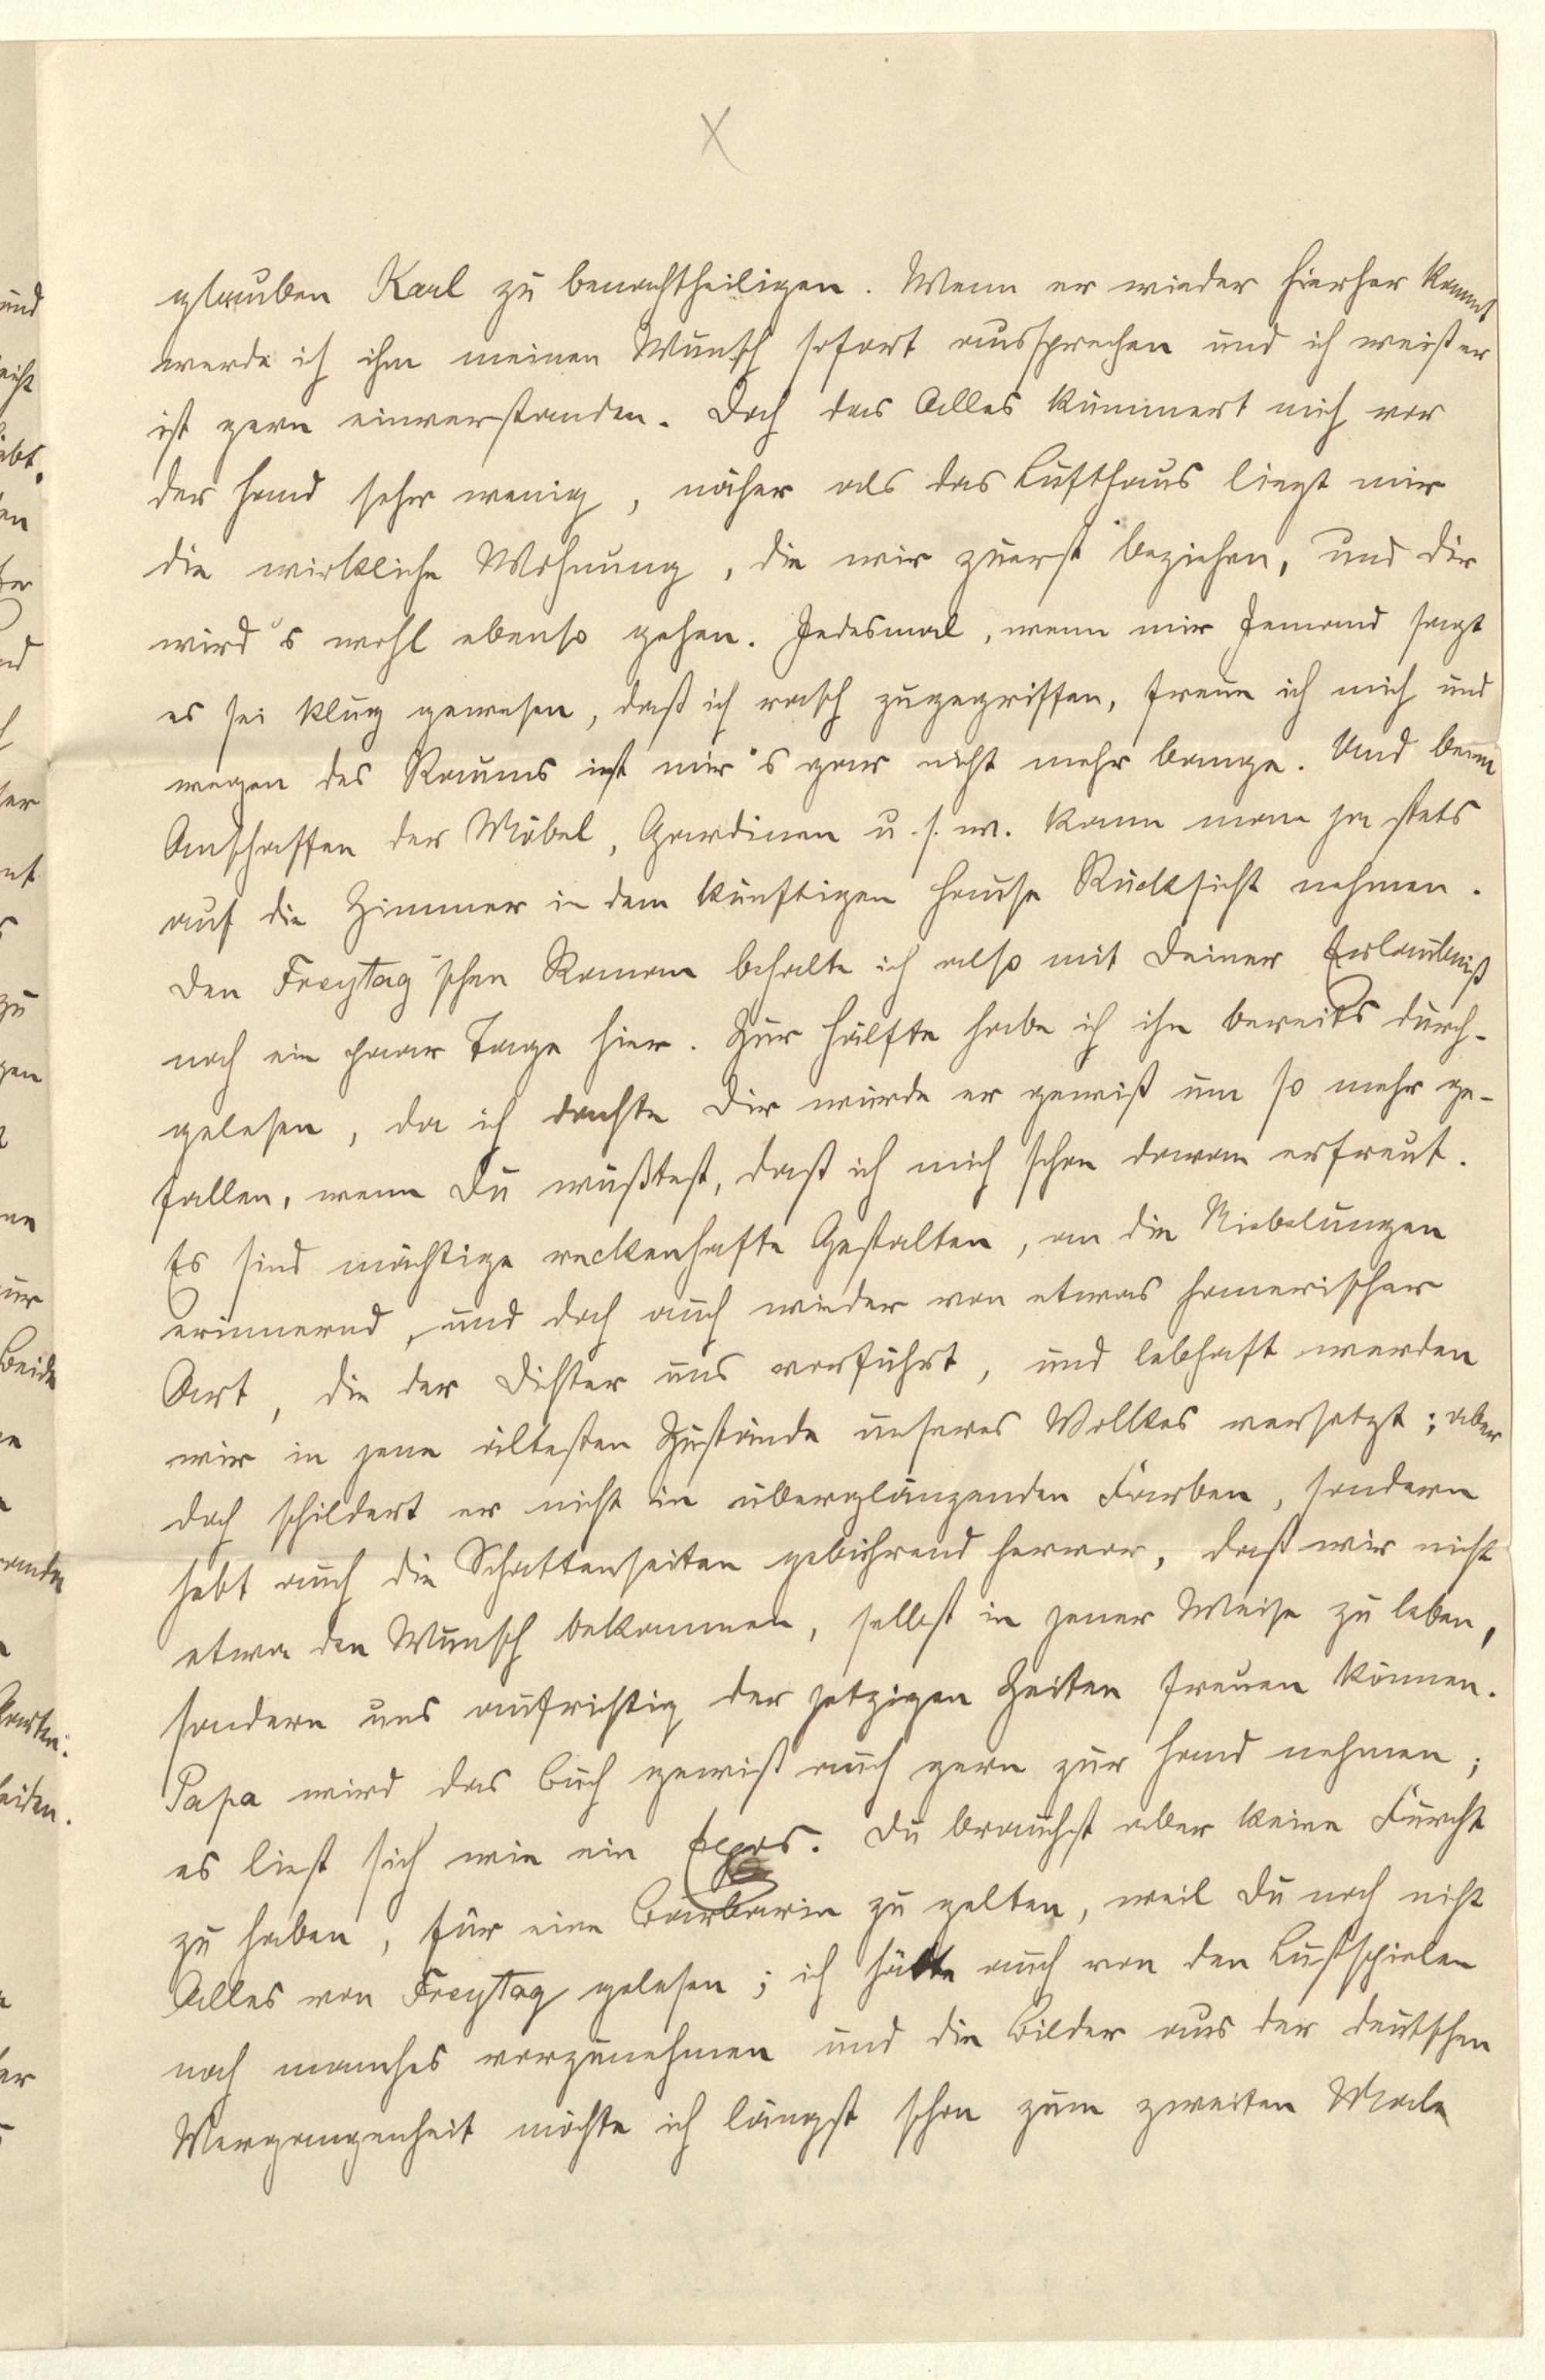 X
glauben Karl zu benachtheiligen. Wenn er wieder hierher kommt
werde ich ihm meinen Wunsch sofort aussprechen und ich weiß er
ist gern einverstanden. Doch das Alles kümmert mich vor
der Hand sehr wenig, näher als das Lufthaus liegt mir
die wirkliche Wohnung, die wir zuerst beziehen, und Dir
wird's wohl ebenso gehen. Jedesmal, wenn mir Jemand sagt
es sei klug gewesen, daß ich rasch zugegriffen, freue ich mich und
wegen des Raums ist mir's gar nicht mehr bange. Und beim
Anschaffen der Möbel, Gardinen u. s. w. kann man ja stets
auf die Zimmer in dem künftigen Hause Rücksicht nehmen.
Den Freytag'schen Roman behalte ich also mit Deiner Erlaubniß
noch ein paar Tage hier. Zur Hälfte habe ich ihn bereits durch-
gelesen, da ich dachte Dir würde er gewiß um so mehr ge-
fallen, wenn Du wüßtest, daß ich mich schon daran erfreut.
Es sind mächtige reckenhafte Gestalten, an die Niebelungen
erinnernd, und doch auch wieder von etwas homerischer
Art, die der Dichter uns vorführt, und lebhaft werden
wir in jene ältesten Zustände unseres Volkes versetzt; aber
doch schildert er nicht in überglänzenden Farben, sondern
hebt auch die Schattenseiten gebührend hervor, daß wir nicht
etwa den Wunsch bekommen, selbst in jener Weise zu leben,
sondern uns aufrichtig der jetzigen Zeiten freuen können.
Papa wird das Buch gewiß auch gern zur Hand nehmen;
es liest sich wie ein Epos. Du brauchst aber keine Furcht
zu haben, für eine Barbarin zu gelten, weil Du noch nicht
Alles von Freytag gelesen; ich hätte auch von den Lustspielen
noch manches vorzunehmen und die Bilder aus der deutschen
Vergangenheit möchte ich längst schon zum zweiten Male